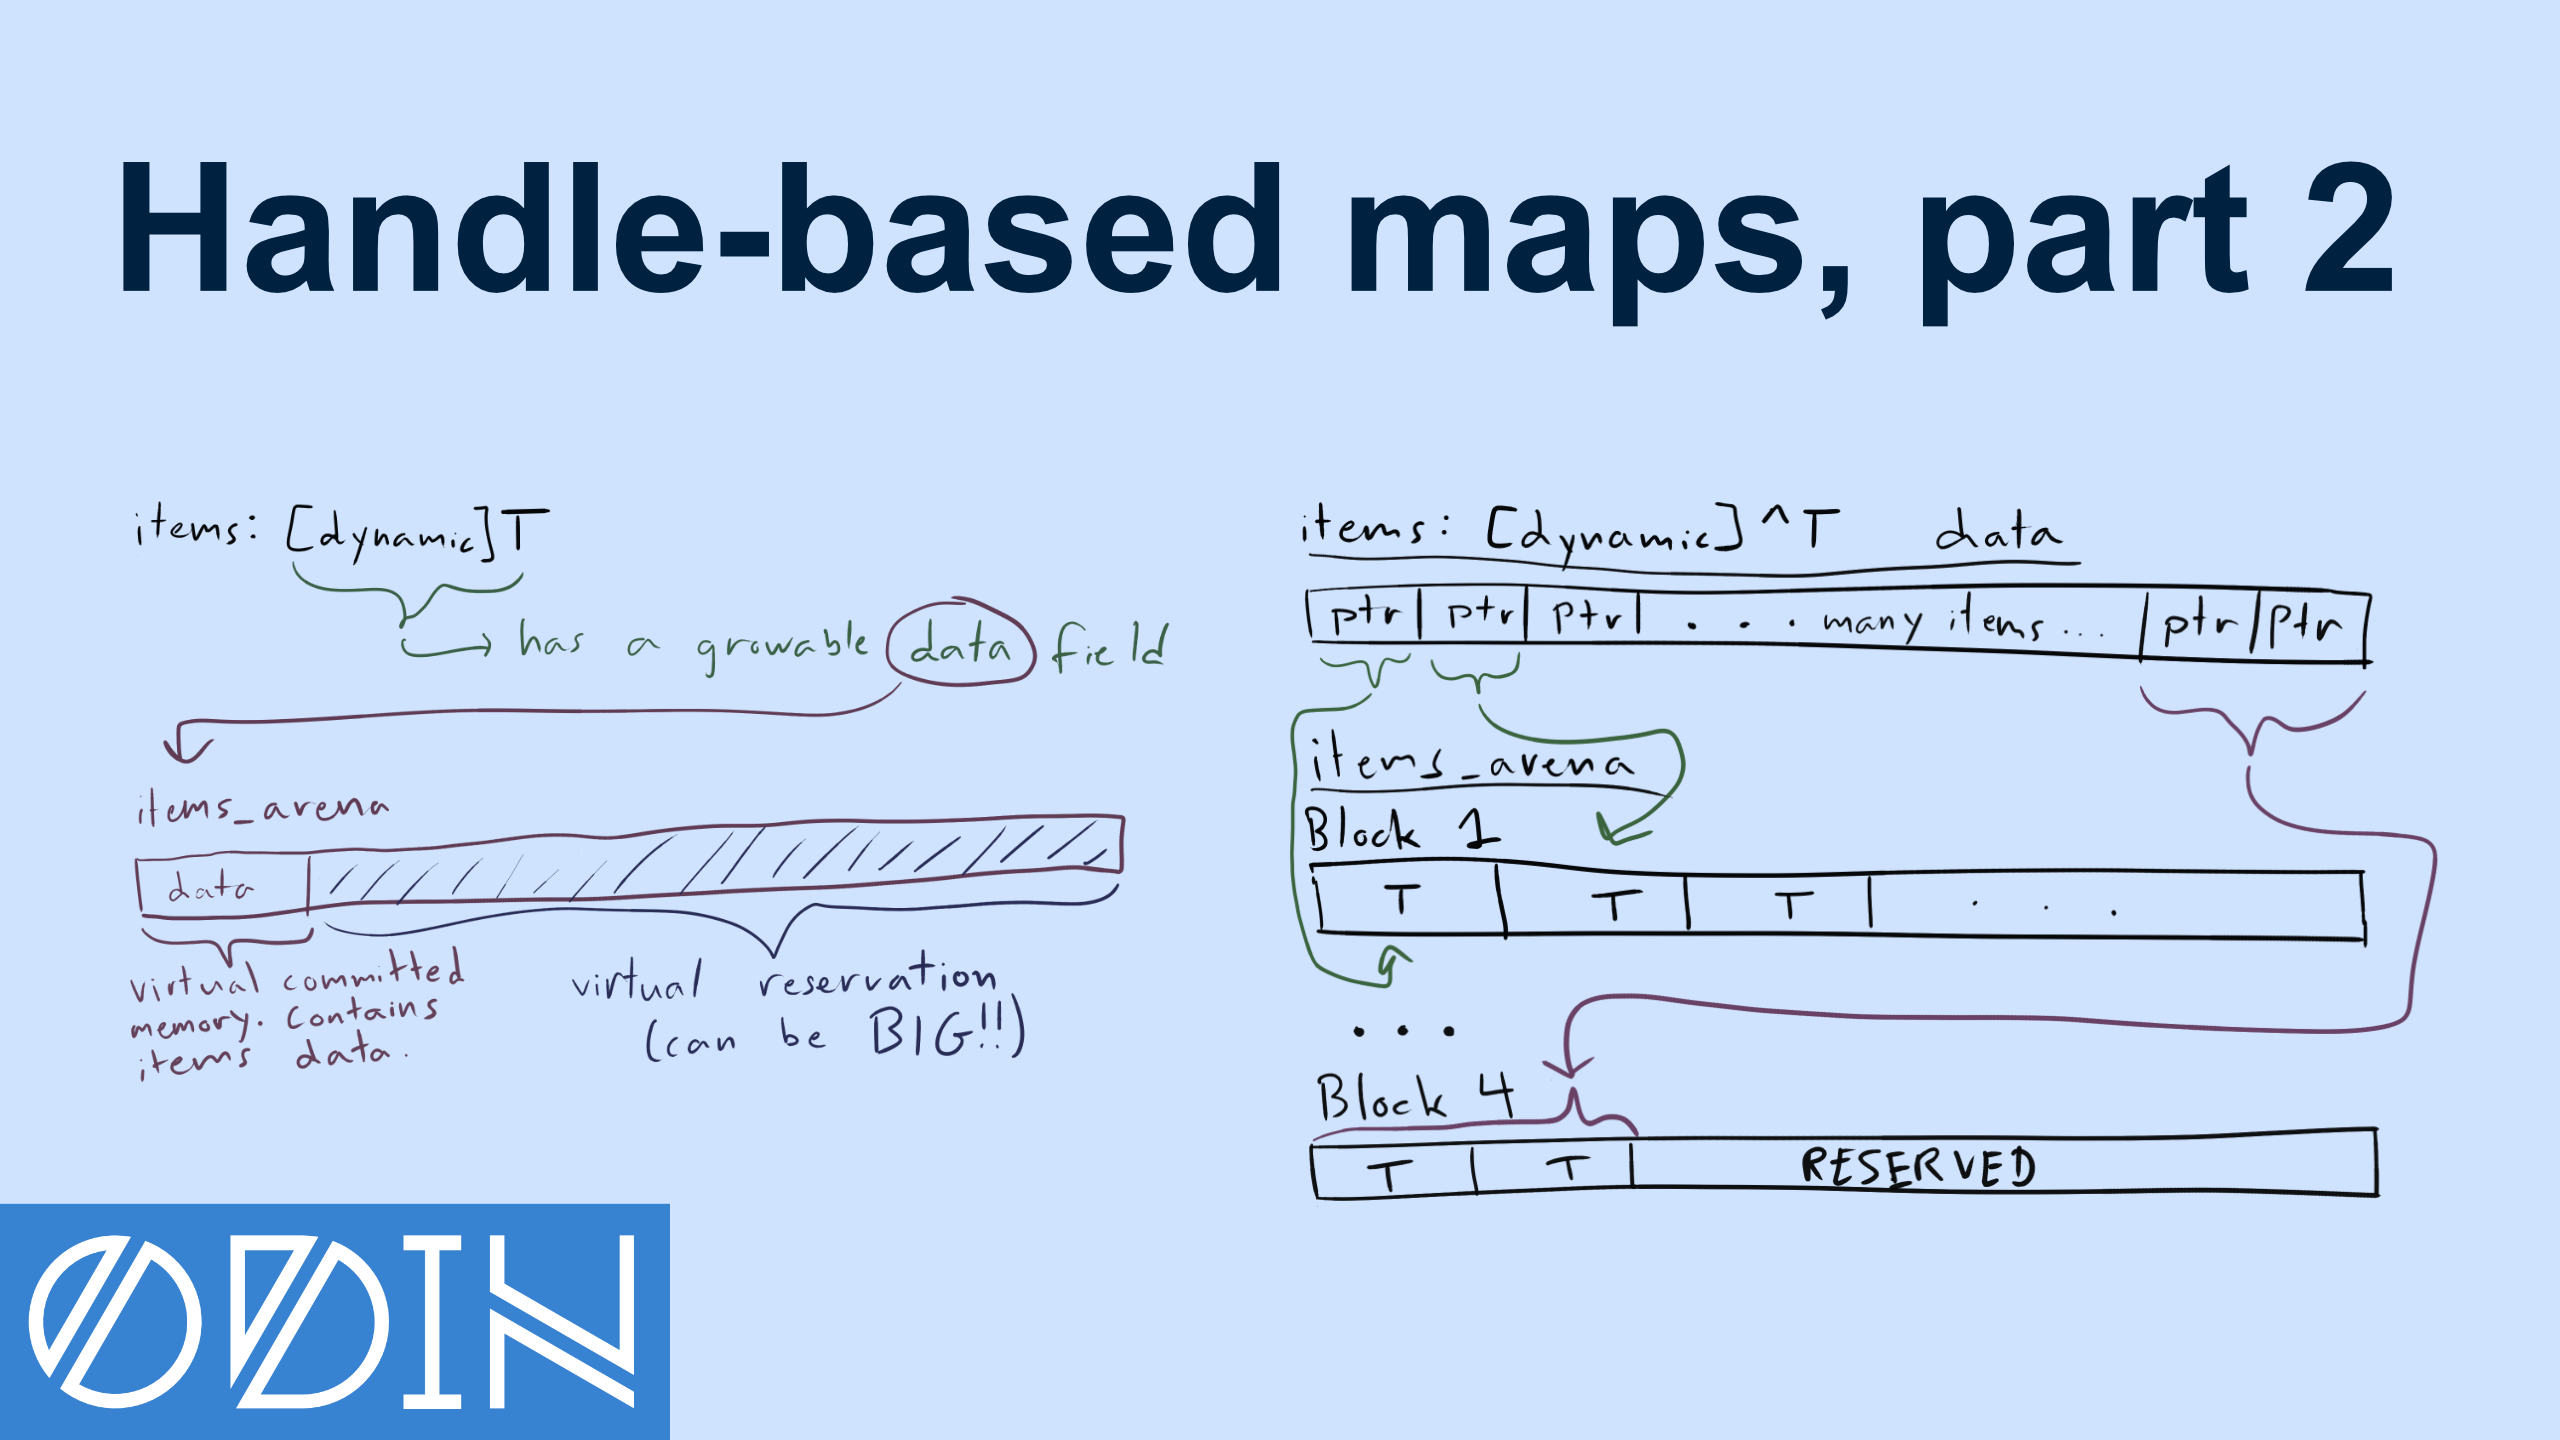 Handle-based maps, part 2
items: [dynamic]T
has a growable data field
items_arena
data
virtual committed
memory. Contains
items data.
virtual reservation
(can be BIG!!)
items: [dynamic]^T data
ptr ptr ptr . . . many items... ptr ptr
items_arena
Block 1
T T T . . .
. . .
Block 4
T T RESERVED
ODIN